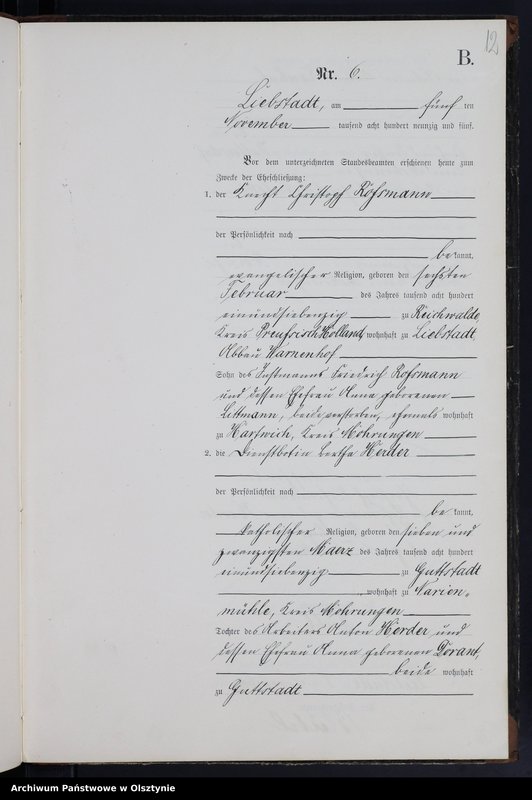 12
B.
Nr. 6.
Liebstadt, am fünf ten
November tausend acht hundert neunzig und fünf.
Vor dem unterzeichneten Standesbeamten erschienen heute zum
Zwecke der Eheschließung:
1. der Knecht Christoph Roßmann
der Persönlichkeit nach
be kannt,
evangelischer Religion, geboren den sechsten
Februar des Jahres tausend acht hundert
einundsiebenzig zu Reichwalde,
Kreis Preußisch Holland, wohnhaft zu Liebstadt,
Abbau Warnenhof
Sohn des Instmanns Friedrich Roßmann
und dessen Ehefrau Anna geborenen
Littmann, beide verstorben, ehemals wohnhaft
zu Hartwich, Kreis Mohrungen
2. die Dienstbotin Bertha Herder
der Persönlichkeit nach
be kannt,
katholischer Religion, geboren den sieben und
zwanzigsten Maerz des Jahres tausend acht hundert
einundsiebenzig zu Guttstadt
, wohnhaft zu Narien-
mühle, Kreis Mohrungen
Tochter des Arbeiters Anton Herder und
dessen Ehefrau Anna geborenen Dorant,
beide wohnhaft
zu Guttstadt
Archiwum Państwowe w Olsztynie